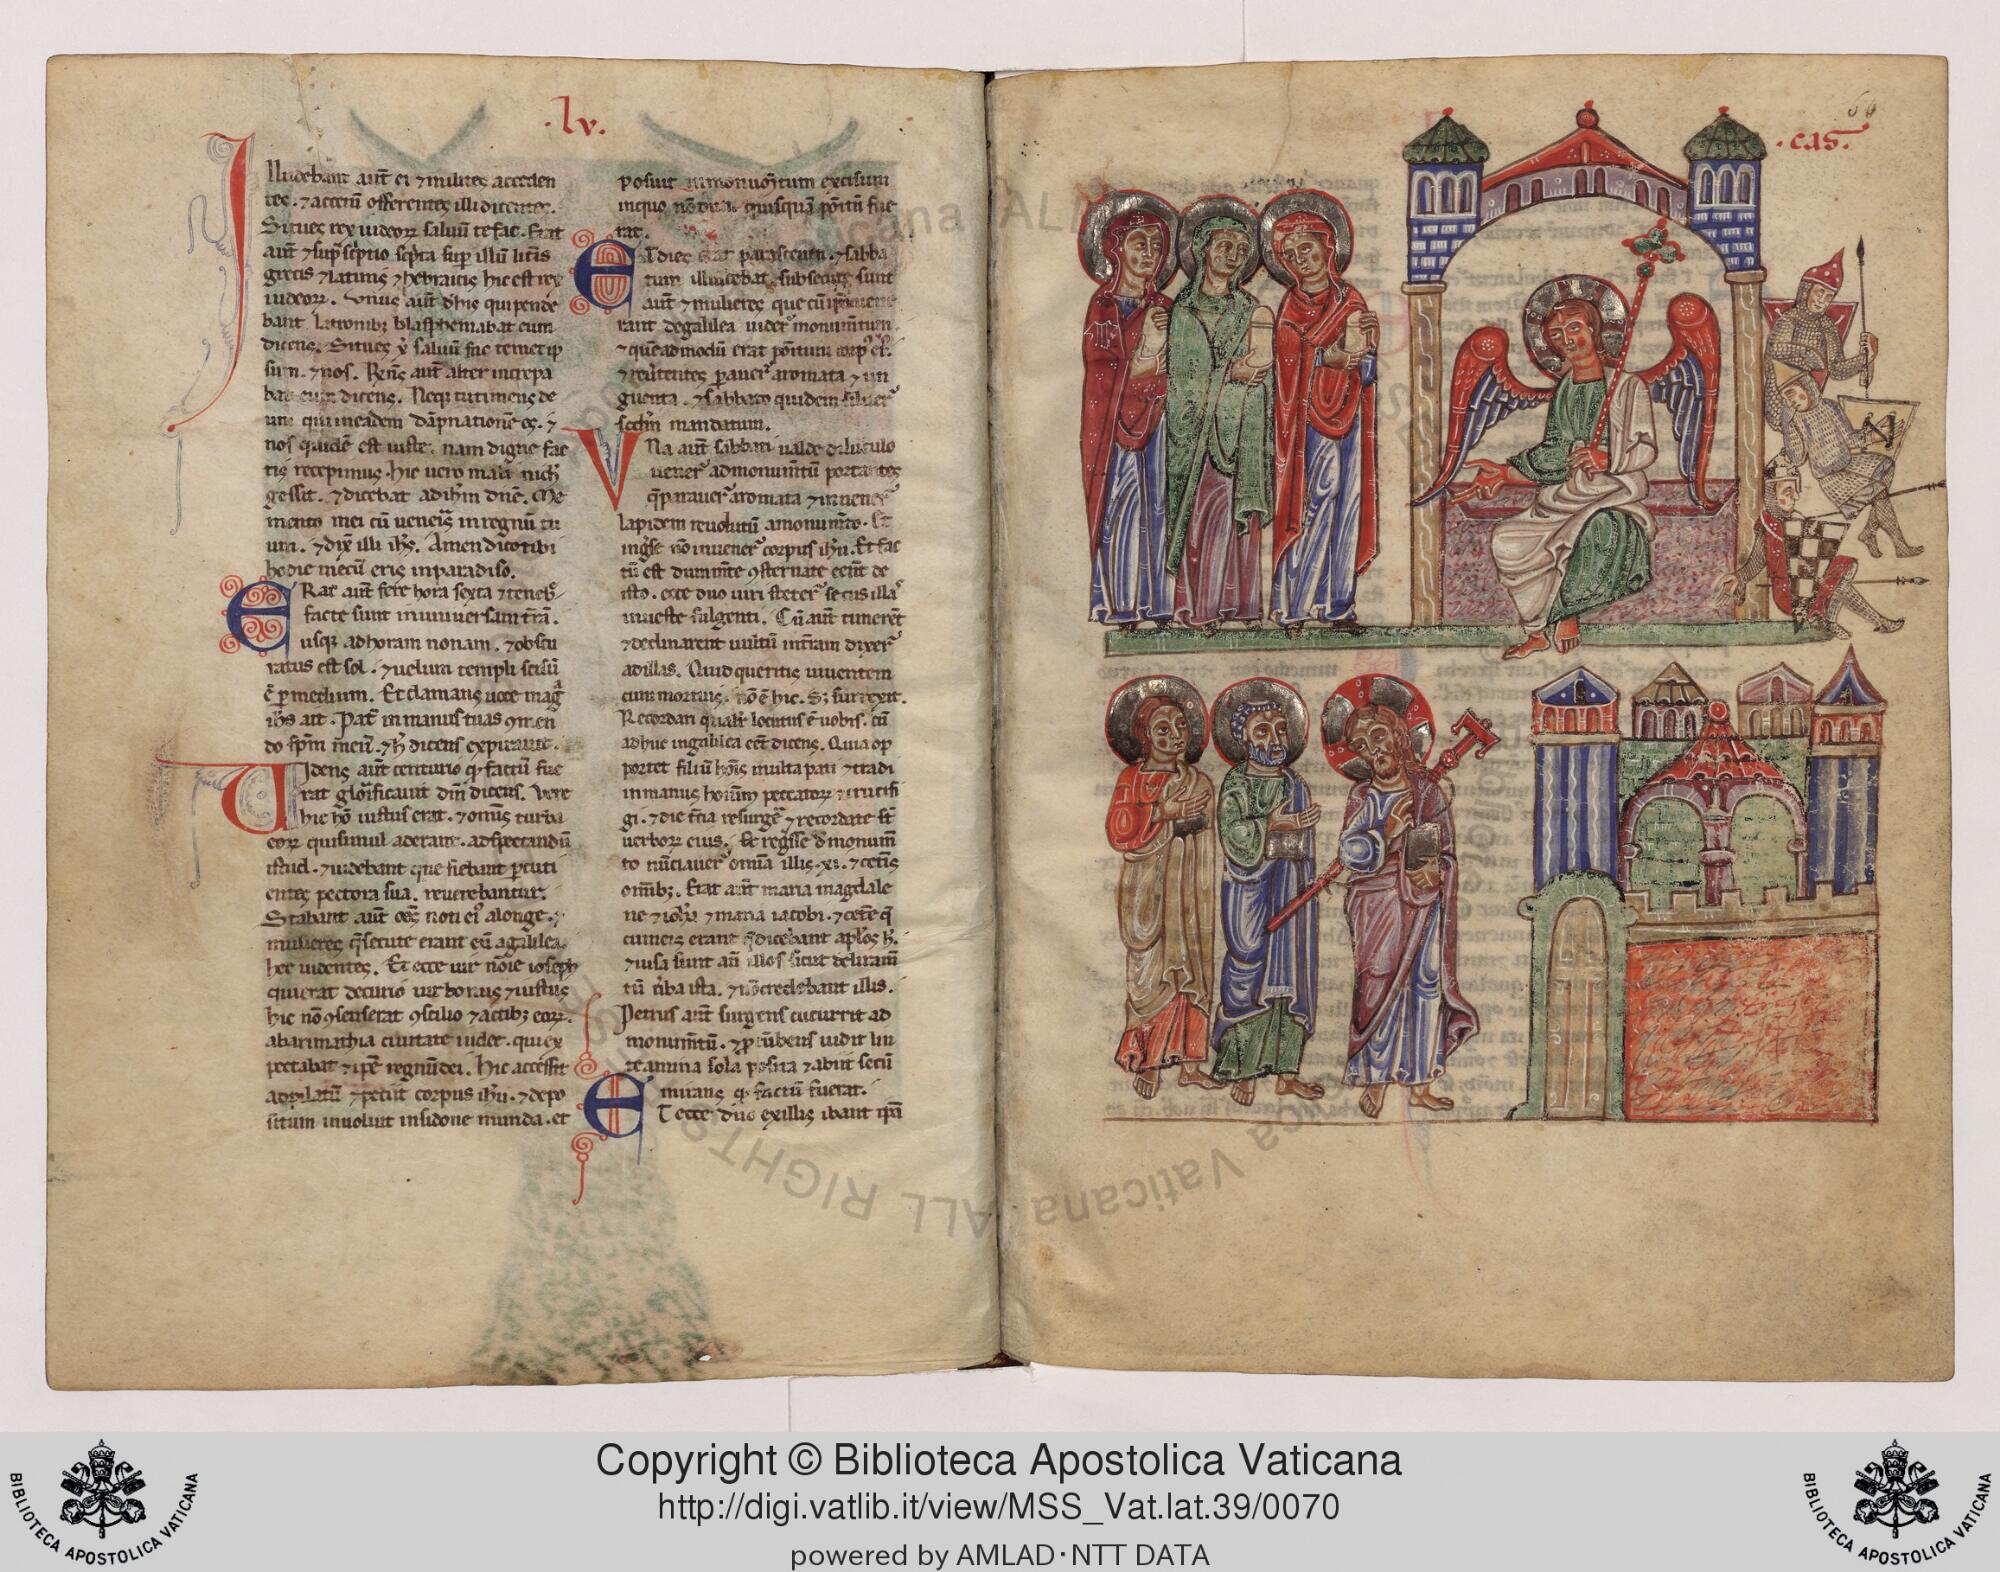 .lv.
Illudebant aut̄ ei ⁊ milites acceden
tes. ⁊ acetū offerentes illi dicentes.
Si tu es rex iudeoꝝ saluū te fac. Erat
aut̄ ⁊ sup̄scriptio scp̄ta sup̄ illū litt̄is
grecis ⁊ latinis ⁊ hebraicis hic est rex
iudeoꝝ. Vnus aut̄ d̄ his qui pende
bant latronibꝫ blasphemabat eum
dicens. Si tu es xp̄s saluū fac temetip
sum. ⁊ nos. Rn̄s aut̄ alter increpa
bat eum dicens. Neqꝫ tu times de
um qui in eadem dāpnatione es. ⁊
nos quidē est iuste. nam digne fac
tis recepimus. hic uero mali nich̄
gessit. ⁊ dicebat ad ih̄m dn̄e. Me
mento mei cū ueneris in regnū tu
um. ⁊ dix̄ illi ih̄s. Amen dico tibi
hodie mecū eris in paradiso.
Erat aut̄ fere hora sexta ⁊ teneb̄
facte sunt in uniuersam t̄rā.
usqꝫ ad horam nonam. ⁊ obscu
ratus est sol. ⁊ uelum templi scisū
ē p̄ medium. Et clamans uoce maḡ
ih̄s ait. Pat̄ in manus tuas ꝯmen
do sp̄m meū. ⁊ h̄ dicens expirauit.
Videns aut̄ centurio qꝫ factū fue
rat glōrificauit dm̄ dicens. Vere
hic hō iustus erat. ⁊ omnis turba
eoꝝ qui simul aderant. ad spectandū
istud. ⁊ uidebant que fiebant p̄cuti
entes pectora sua. reuertebantur.
Stabant aut̄ om̄s noti ei⁹ a longe. ⁊
mulieres q̄ secute erant eū a galilea.
hec uidentes. Et ecce uir nōie ioseph
qui erat decurio uir bonus ⁊ iustus
hic nō ꝯsenserat ꝯsilio ⁊ actibꝫ eoꝝ.
ab arimathia ciuitate iudee. qui ex
pectabat ⁊ ip̄e regnū dei. Hic accessit
ad pilatū ⁊ petiit corpus ih̄u. ⁊ depo
situm inuoluit in sidone munda. et
posuit in monum̄tum excisum
in quo nōdum quisquā poitū fue
rat.
Et dies erat parasceuen. ⁊ sabba
tum illucebat subsecute sunt
aut̄ ⁊ mulieres que cū ip̄o uene
rant de galilea uider̄ monum̄tum.
⁊ quēadmodū erat poitum corp⁹ ei⁹.
⁊ reu̇tentes parauer̄ aromata ⁊ un
guenta. ⁊ sabbato quidem siluer̄
scd̄m mandatum.
Vna aut̄ sabbati ualde diluculo
uener̄ ad monum̄tū portantes
q̄ parauer̄ aromata ⁊ inuener̄
lapidem reuolutū a monum̄to. Et
ingr̄se nō inuener̄ corpus ih̄u. Et fac
tū est dum m̄te ꝯsternate ee̅nt de
isto. ecce duo uiri steter̄ secus illas
in ueste fulgenti. Cū aut̄ timerēt
⁊ declinarent uultū in t̄ram dixer̄
ad illas. Quid queritis uiuentem
cum mortuis. nō ē hic. Sꝫ surrexit.
Recordati qualit̄ locutus ē uobis. cū
adhuc in galilea eēt dicens. Quia op
portet filiū hōis multa pati ⁊ tradi
in manus hoīum peccatoꝝ ⁊ crucifi
gi. ⁊ die t̄cia resurgē ⁊ recordate st̄
uerboꝝ eius. Et regr̄sse d̄ monum̄
to nūciauer̄ om̄ia illis .xi. ⁊ cet̄is
omībꝫ. Erat aut̄ maria magdale
ne ⁊ ioh̄a ⁊ maria iacobi. ⁊ cetēe q̄
cum eis erant q̄ dicebant ap̄los h̄.
⁊ uisa sunt an̄ illos sicut deliram̄
tū ūba ista. ⁊ nō credebant illis.
Petrus aut̄ surgens cucurrit ad
monum̄tū. ⁊ p̄cūbens uidit lin
teamina sola posita ⁊ abiit secū
mirans qꝫ factū fuerat.
Et ecce duo ex illis ibant ip̄a
69
.cas.
Copyright © Biblioteca Apostolica Vaticana
http://digi.vatlib.it/view/MSS_Vat.lat.39/0070
powered by AMLAD·NTT DATA
BIBLIOTECA APOSTOLICA VATICANA
BIBLIOTECA APOSTOLICA VATICANA